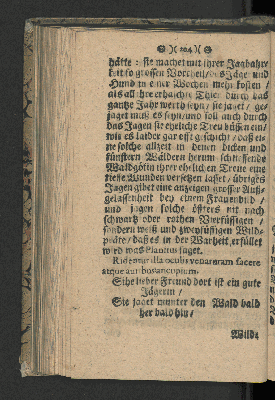 )( 204 )(
hätte: sie machet mit ihrer Jagbahre
keit so grossen Vortheil / das Jäge und
Hund in einer Wochen mehr kosten /
als all ihre erhaschte Thier durch das
gantze Jahr werth seyn / sie jaget / ge-
jaget muß es seyn / und soll auch durch
das Jagen sie ehrliche Treu büssen ein /
wie es laider gar offt geschicht / daß ei-
ne solche allzeit in denen dicken und
finstern Wäldern herum schieffende
Waldgöttin ihrer ehelichen Treue eine
tieffe Wunden versetzen lasset / übriges
Jagen gibet eine anzeigen grosser Auß-
gelassenheit bey einem Frauenbild /
und jagen solche öffters nit nach
schwartz oder rothen Vierfüssigen /
sondern weiß und zweyfüssigen Wild-
präte / daß es in der Warheit erfüllet
wird was Plautus saget.
Rident illa oculis venaturam facere
atque aut bosancupium.
Sihe lieber Freund dort ist ein gute
Jägerin /
Sie jaget munter den Wald bald
her bald hin /
Wild-